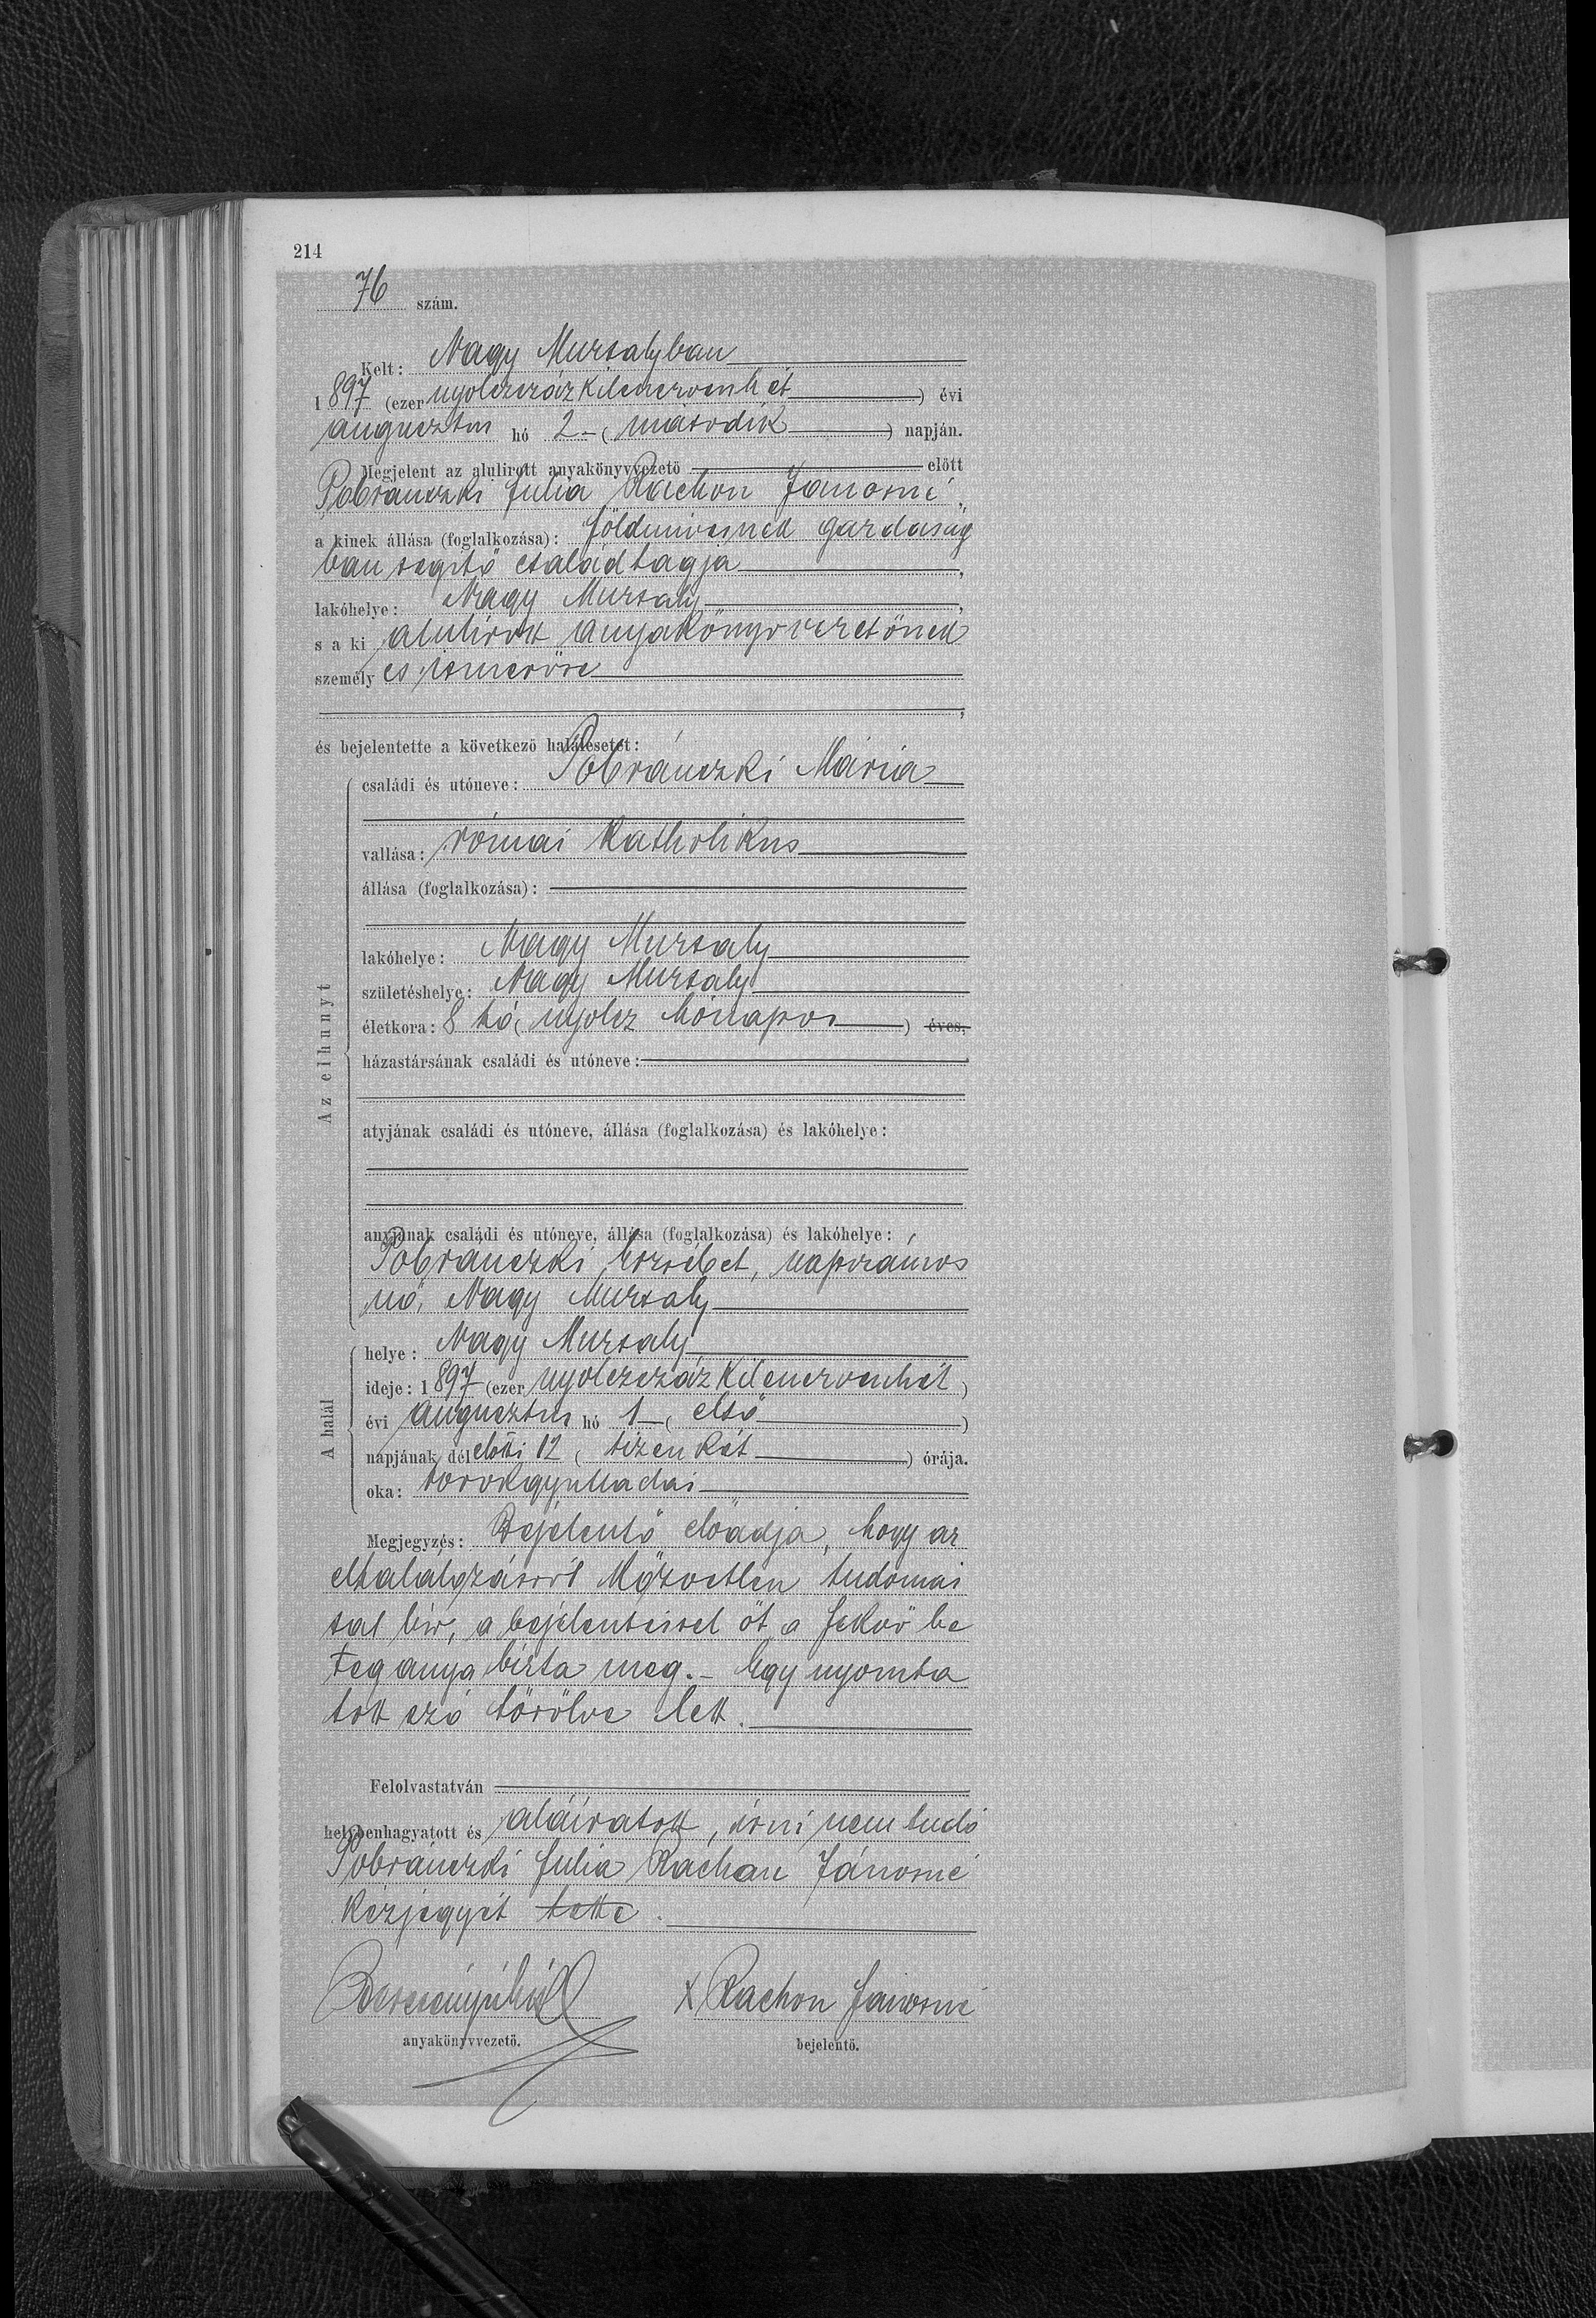 214
76 szám.
Kelt: Nagy Mursalyban
1897 (ezer nyolczszáz kilenczvenhét) évi
augusztus hó 2 - (második) napján.
Megjelent az alulirott anyakönyvvezető előtt
Pobránczki Julia Rachon Jánosné,
a kinek állása (foglalkozása): földmivesnek gazdaság
ban segítő családtagja,
lakóhelye: Nagy Mursaly,
s a ki alulirott anyakönyvvezetőnek
személy es ismerőse
és bejelentette a következő halálesetet:
Az elhunyt
családi és utóneve: Pobránczki Mária
vallása: római katholikus
állása (foglalkozása):
lakóhelye: Nagy Mursaly
születéshelye: Nagy Mursaly
életkora: 8 hó (nyolcz hónapos) éves,
házastársának családi és utóneve:
atyjának családi és utóneve, állása (foglalkozása) és lakóhelye:
anyjának családi és utóneve, állása (foglalkozása) és lakóhelye:
Pobránczki Erzsébet, napszámos
nő, Nagy Mursaly
A halál
helye: Nagy Mursaly
ideje: 1897 (ezer nyolczszáz kilenczvenhét)
évi augusztus hó 1 - (első)
napjának dél előtti 12 (tizenkét) órája.
oka: torokgyulladás
Megjegyzés: Bejelentő előadja, hogy az
elhalálozásról közvetlen tudomás
sal bír, a bejelentéssel őt a fekvő be
teg anya bízta meg. - Egy nyomta
tott szó törölve lett.
Felolvastatván
helybenhagyatott és aláíratott, írni nem tudó
Pobránczki Julia Rachon Jánosné
kézjegyét tette.
X Rachon Jánosné
anyakönyvvezető. bejelentő.